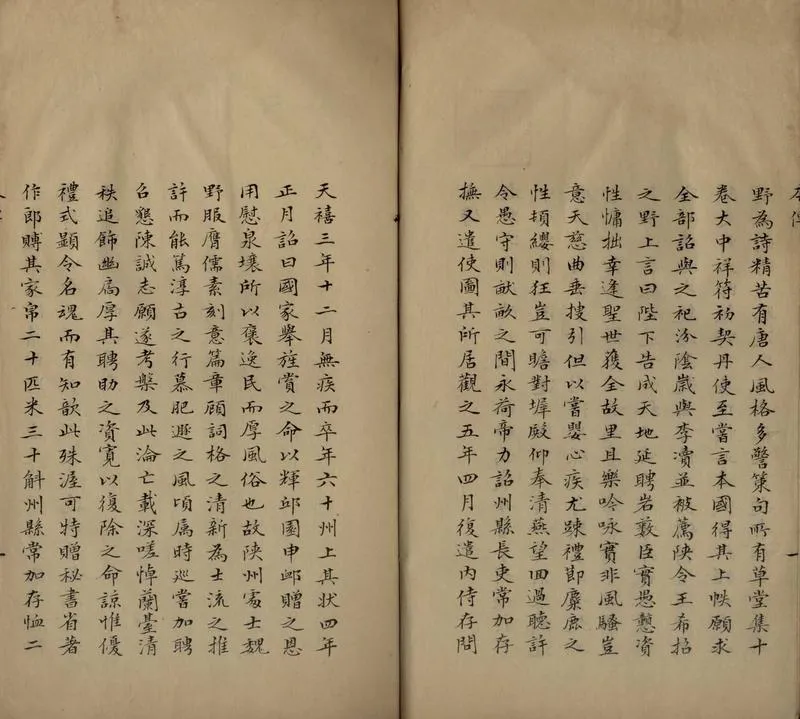 野為詩精苦有唐人風格多警策句所有草堂集十
卷大中祥符初契丹使至嘗言本國得其上帙願求
全部詔與之祀汾陰歲與李瀆並被薦陝令王希招
之野上言曰陛下告成天地延聘岩藪臣實愚戇資
性慵拙幸逢聖世獲全故里且樂吟咏實非風騷豈
意天慈曲垂搜引但以嘗嬰心疾尤踈禮節麋鹿之
性頓纓則狂豈可瞻對墀殿仰奉清燕望回過聽許
令愚守則畎畝之間永荷帝力詔州縣長吏常加存
撫又遣使圖其所居觀之五年四月復遣内侍存問
天禧三年十二月無疾而卒年六十州上其狀四年
正月詔曰國家舉旌賞之命以輝邱園申卹贈之恩
用慰泉壤所以褒逸民而厚風俗也故陝州處士魏
野服膺儒素刻意篇章顧詞格之清新為士流之推
許而能篤淳古之行慕肥遯之風頃属時巡嘗加聘
召懇陳誠志願遂考槃及此淪亡載深嗟悼蘭臺清
秩追飾幽扃厚其聘助之資寛以復除之命諒惟優
禮式顯令名魂而有知歆此殊渥可特贈秘書省著
作郎賻其家帛二十匹米三十斛州縣常加存恤二